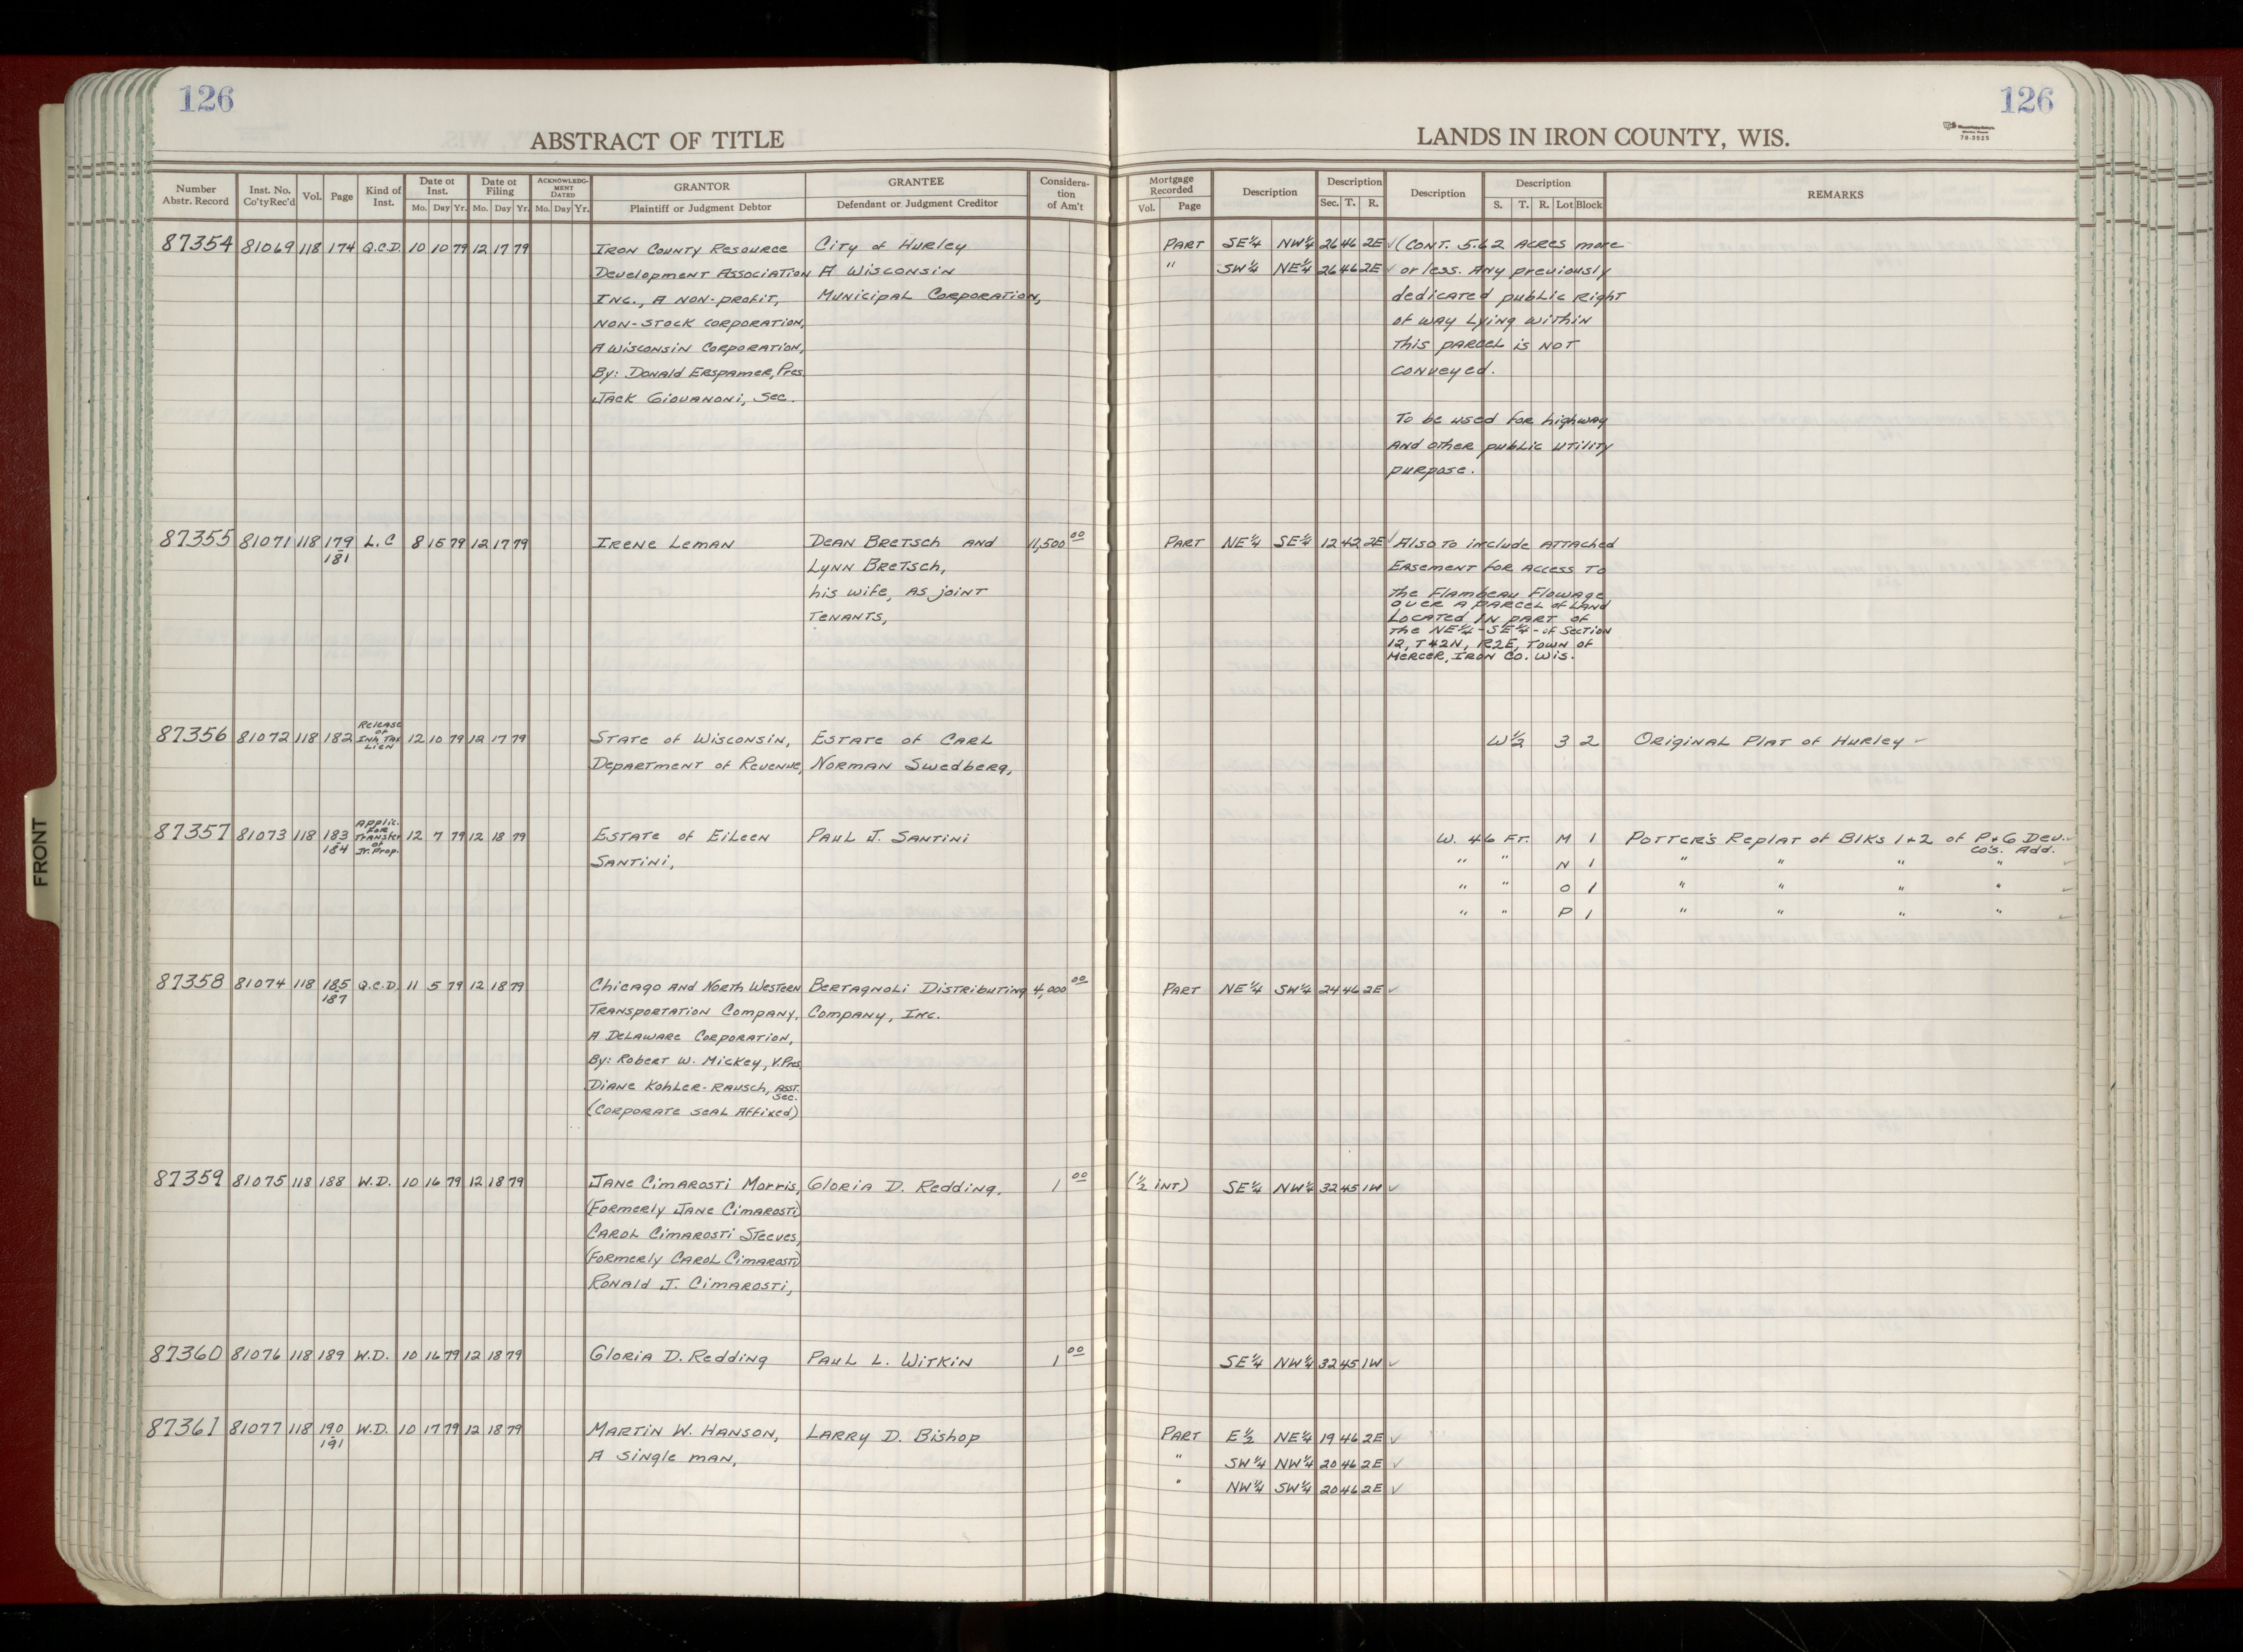 126
126
ABSTRACT OF TITLE
LANDS IN IRON COUNTY, WIS.
78-3525
Number Abstr. Record | Inst. No. Co'ty Rec'd | Vol. | Page | Kind of Inst. | Date of Inst. Mo. Day Yr. | Date of Filing Mo. Day Yr. | ACKNOWLEDGMENT DATED Mo. Day Yr. | GRANTOR Plaintiff or Judgment Debtor | GRANTEE Defendant or Judgment Creditor | Consideration of Am't | Mortgage Recorded Vol. Page | Description | Description Sec. T. R. | Description | Description S. T. R. Lot Block | REMARKS
87354 81069 118 174 Q.C.D. 10 10 79 12 17 79 Iron County Resource City of Hurley Part SE¼ NW¼ 26 46 2E ✓ (Cont. 5.62 Acres more
Development Association A Wisconsin " SW¼ NE¼ 26 46 2E ✓ or less. Any previously
Inc., A non-profit, Municipal Corporation, dedicated public right
non-stock corporation, of way lying within
A Wisconsin Corporation, this parcel is not
By: Donald Erspamer, Pres. conveyed.
Jack Giovanoni, Sec.
To be used for highway
and other public utility
purpose.
87355 81071 118 179-181 L.C 8 15 79 12 17 79 Irene Leman Dean Bretsch and 11,500 00 Part NE¼ SE¼ 12 42 2E ✓ Also to include attached
Lynn Bretsch, Easement for access to
his wife, as joint the Flambeau Flowage
tenants, over a parcel of land
located in part of
the NE¼-SE¼-of Section
12, T42N, R2E, Town of
Mercer, Iron Co. Wis.
87356 81072 118 182 Release of Inh. Tax Lien 12 10 79 12 17 79 State of Wisconsin, Estate of Carl W½ 3 2 Original Plat of Hurley ✓
Department of Revenue, Norman Swedberg,
87357 81073 118 183-184 Applic. for Transfer of Jt. Prop. 12 7 79 12 18 79 Estate of Eileen Paul J. Santini W. 46 Ft. M 1 Potter's Replat of Blks 1+2 of P+G Dev. Co's. Add. ✓
Santini, " " N 1 " " " " ✓
" " O 1 " " " " ✓
" " P 1 " " " " ✓
87358 81074 118 185-187 Q.C.D. 11 5 79 12 18 79 Chicago and North Western Bertagnoli Distributing 4,000 00 Part NE¼ SW¼ 24 46 2E ✓
Transportation Company, Company, Inc.
A Delaware Corporation,
By: Robert W. Mickey, V.Pres.
Diane Kohler-Rausch, Asst. Sec.
(Corporate seal affixed)
87359 81075 118 188 W.D. 10 16 79 12 18 79 Jane Cimarosti Morris, Gloria D. Redding. 1 00 (½ int) SE¼ NW¼ 32 45 1W ✓
(Formerly Jane Cimarosti)
Carol Cimarosti Steeves,
(Formerly Carol Cimarosti)
Ronald J. Cimarosti,
87360 81076 118 189 W.D. 10 16 79 12 18 79 Gloria D. Redding Paul L. Witkin 1 00 SE¼ NW¼ 32 45 1W ✓
87361 81077 118 190-191 W.D. 10 17 79 12 18 79 Martin W. Hanson, Larry D. Bishop Part E½ NE¼ 19 46 2E ✓
A single man, " SW¼ NW¼ 20 46 2E ✓
" NW¼ SW¼ 20 46 2E ✓
FRONT